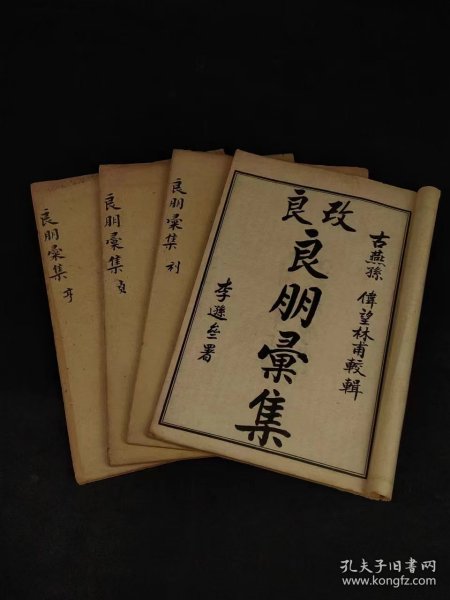 改良
良朋彙集
古燕孫 偉望林甫較輯
李遜垒署
良朋彙集 利
良朋彙集 貞
良朋彙集 亨
孔夫子旧书网
www.kongfz.com